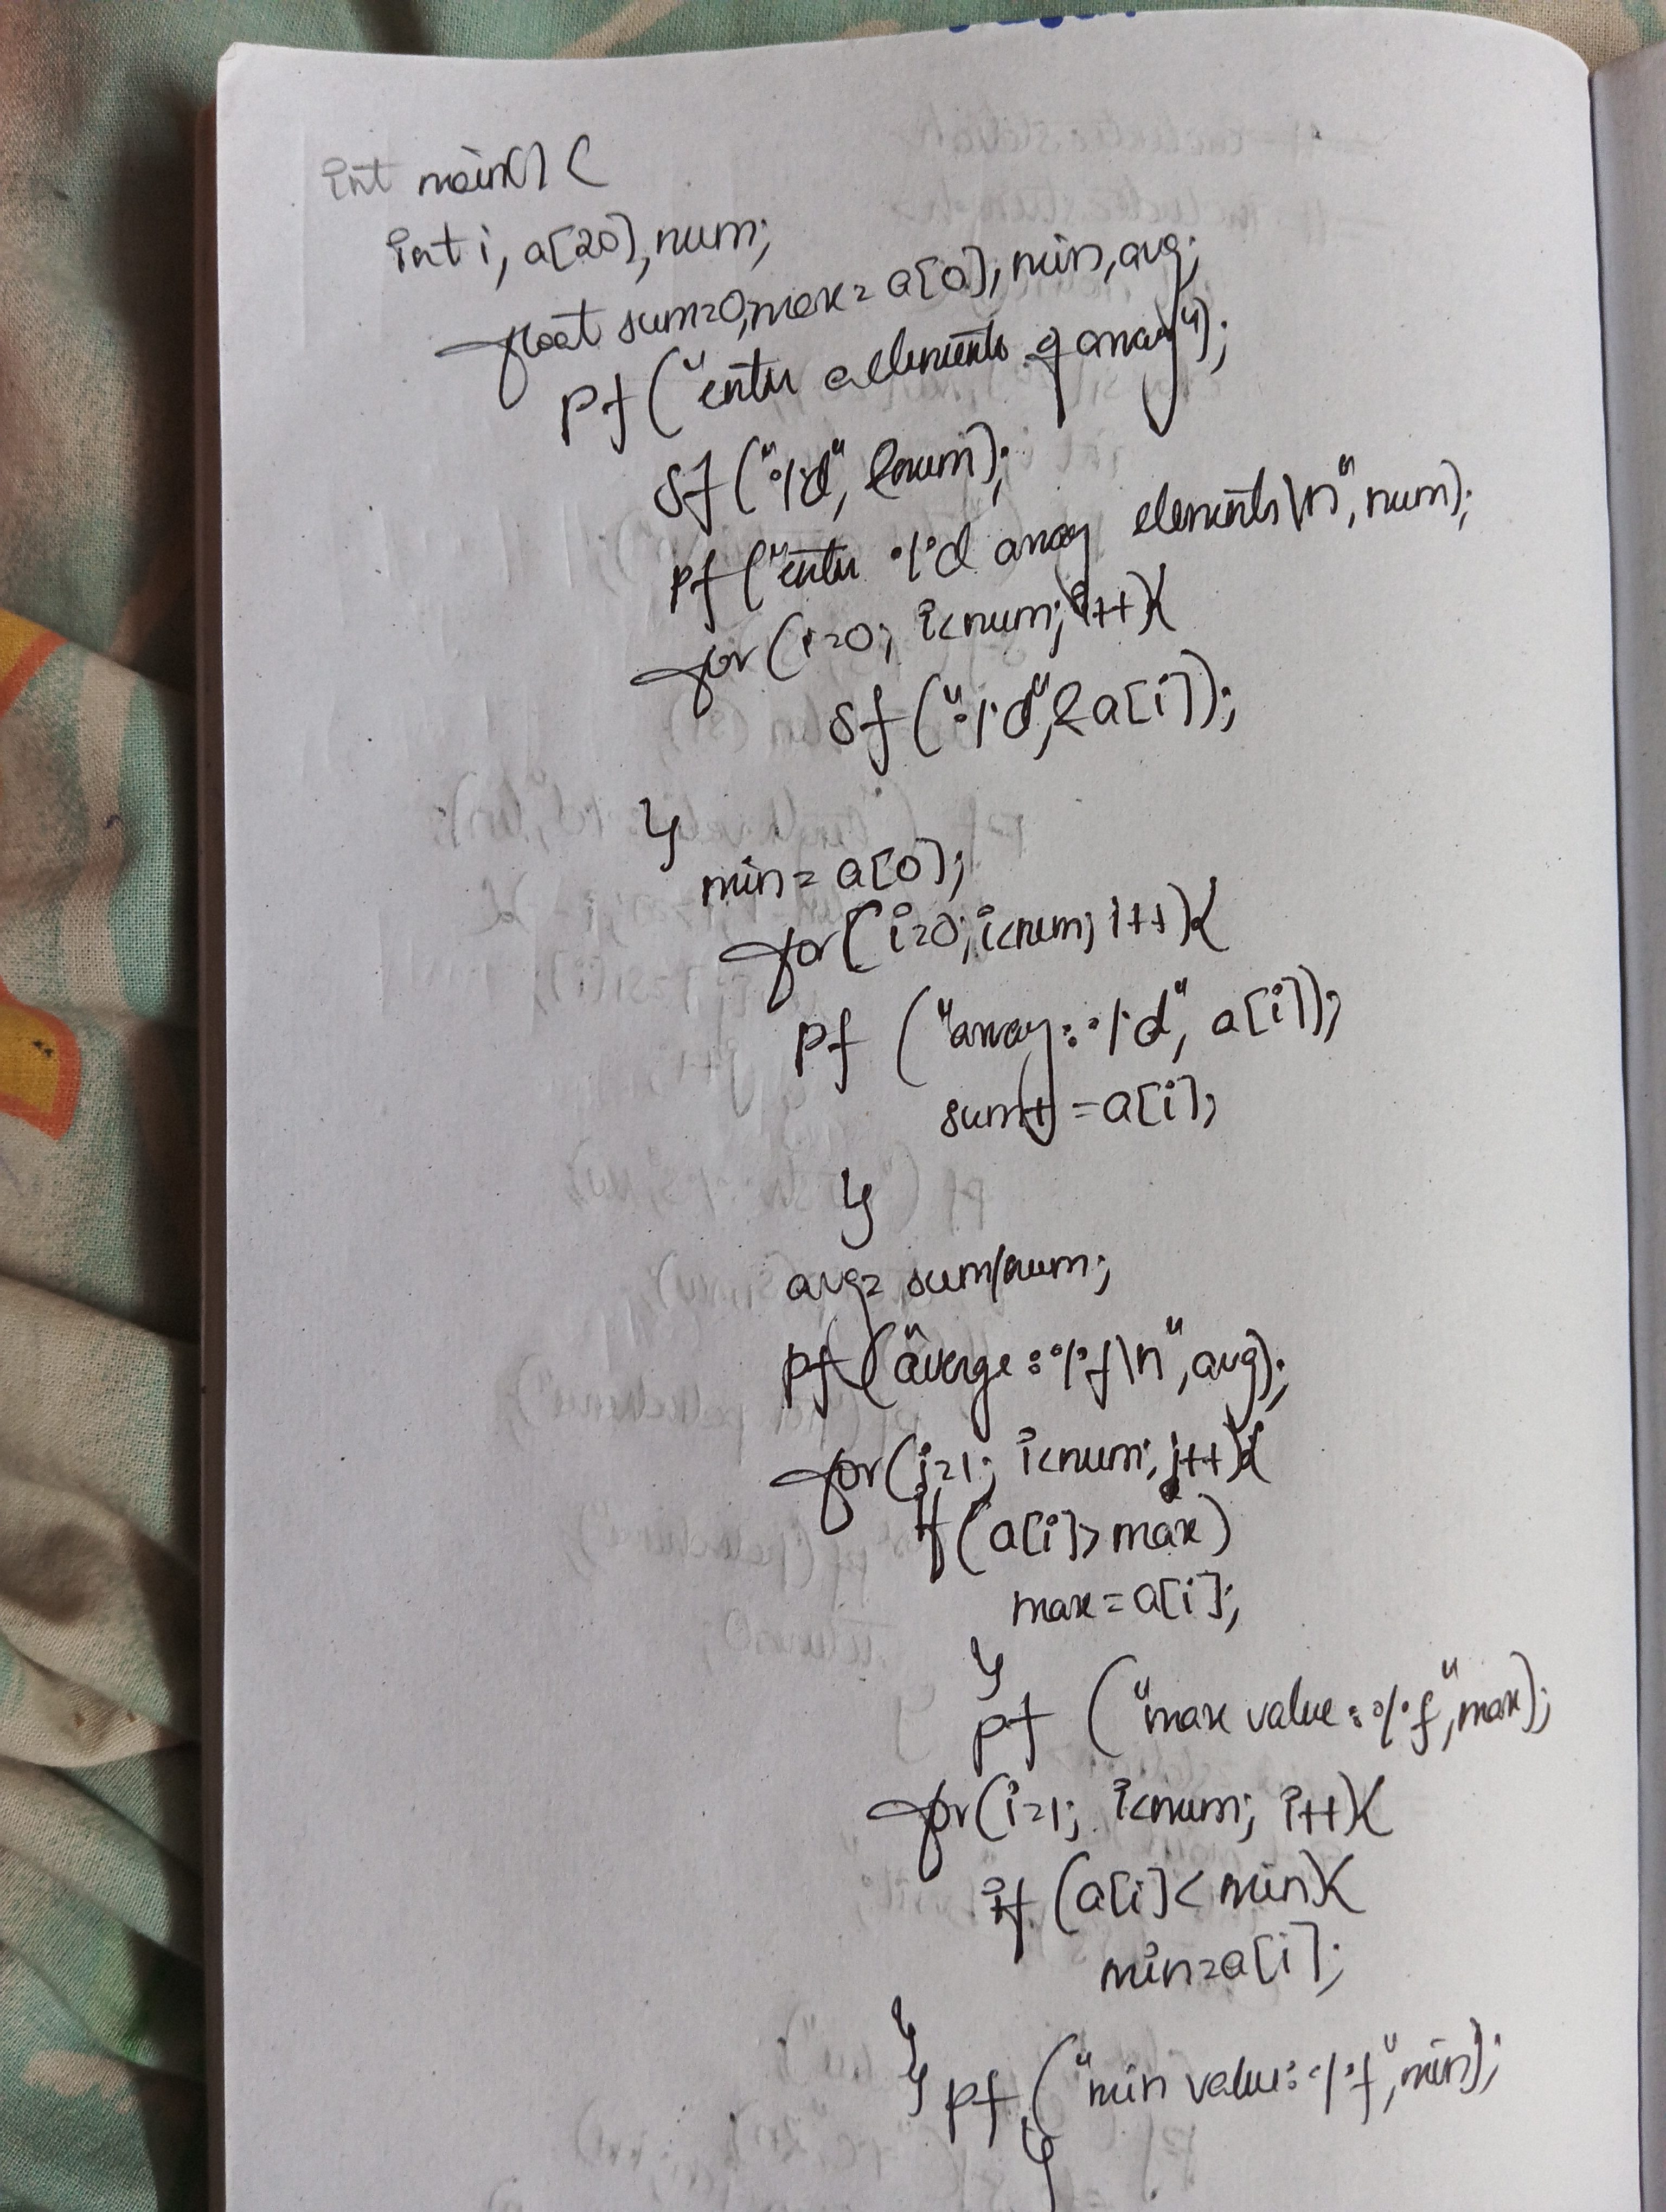 int main() {
int i, a[20], num;
float sum=0, max = a[0], min, avg;
pf ("enter a elements of array");
sf ("%d", &num);
pf ("enter %d array elements\n", num);
for (i=0; i<num; i++){
sf ("%d", &a[i]);
}
min = a[0];
for (i=0; i<num; i++){
pf ("array: %d", a[i]);
sum+ = a[i];
}
avg= sum/num;
pf ("averge: %f\n", avg);
for (j=1; i<num; j++){
if (a[i]> max)
max = a[i];
}
pf ("max value: %f", max);
for (i=1; i<num; i++){
if (a[i] < min){
min=a[i];
}
} pf ("min value: %f", min);
}